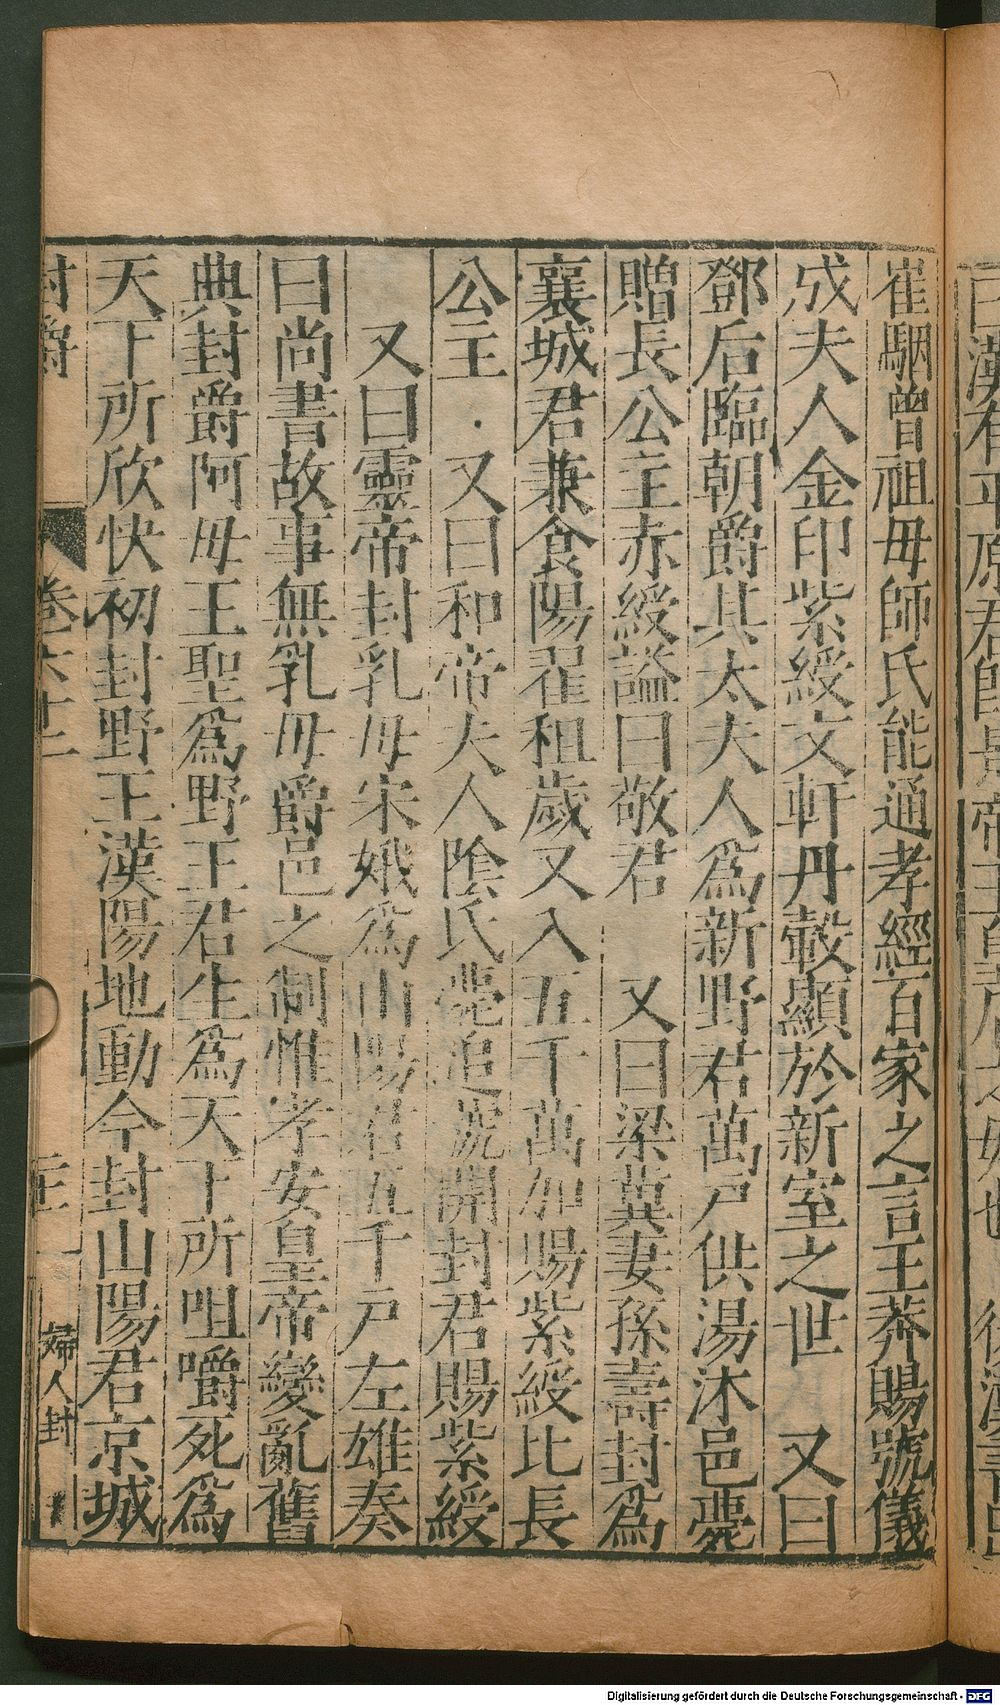 崔駰曾祖母師氏能通孝經百家之言王莽賜號儀
成夫人金印紫綬文軒丹轂顯於新室之世 又曰
鄧后臨朝爵其太夫人爲新野君萬戸供湯沐邑薨
贈長公主赤綬謚曰敬君 又曰梁冀妻孫壽封爲
襄城君兼食陽翟租歲又入五千萬加賜紫綬比長
公主 又曰和帝夫人陰氏薨追號開封君賜紫綬
又曰靈帝封乳母宋娥爲山陽君五千戸左雄奏
曰尚書故事無乳母爵邑之制惟孝安皇帝變亂舊
典封爵阿母王聖爲野王君生爲天下所咀嚼死爲
天下所欣快初封野王漢陽地動今封山陽君京城
封爵 卷六十二 婦人封
Digitalisierung gefördert durch die Deutsche Forschungsgemeinschaft - DFG